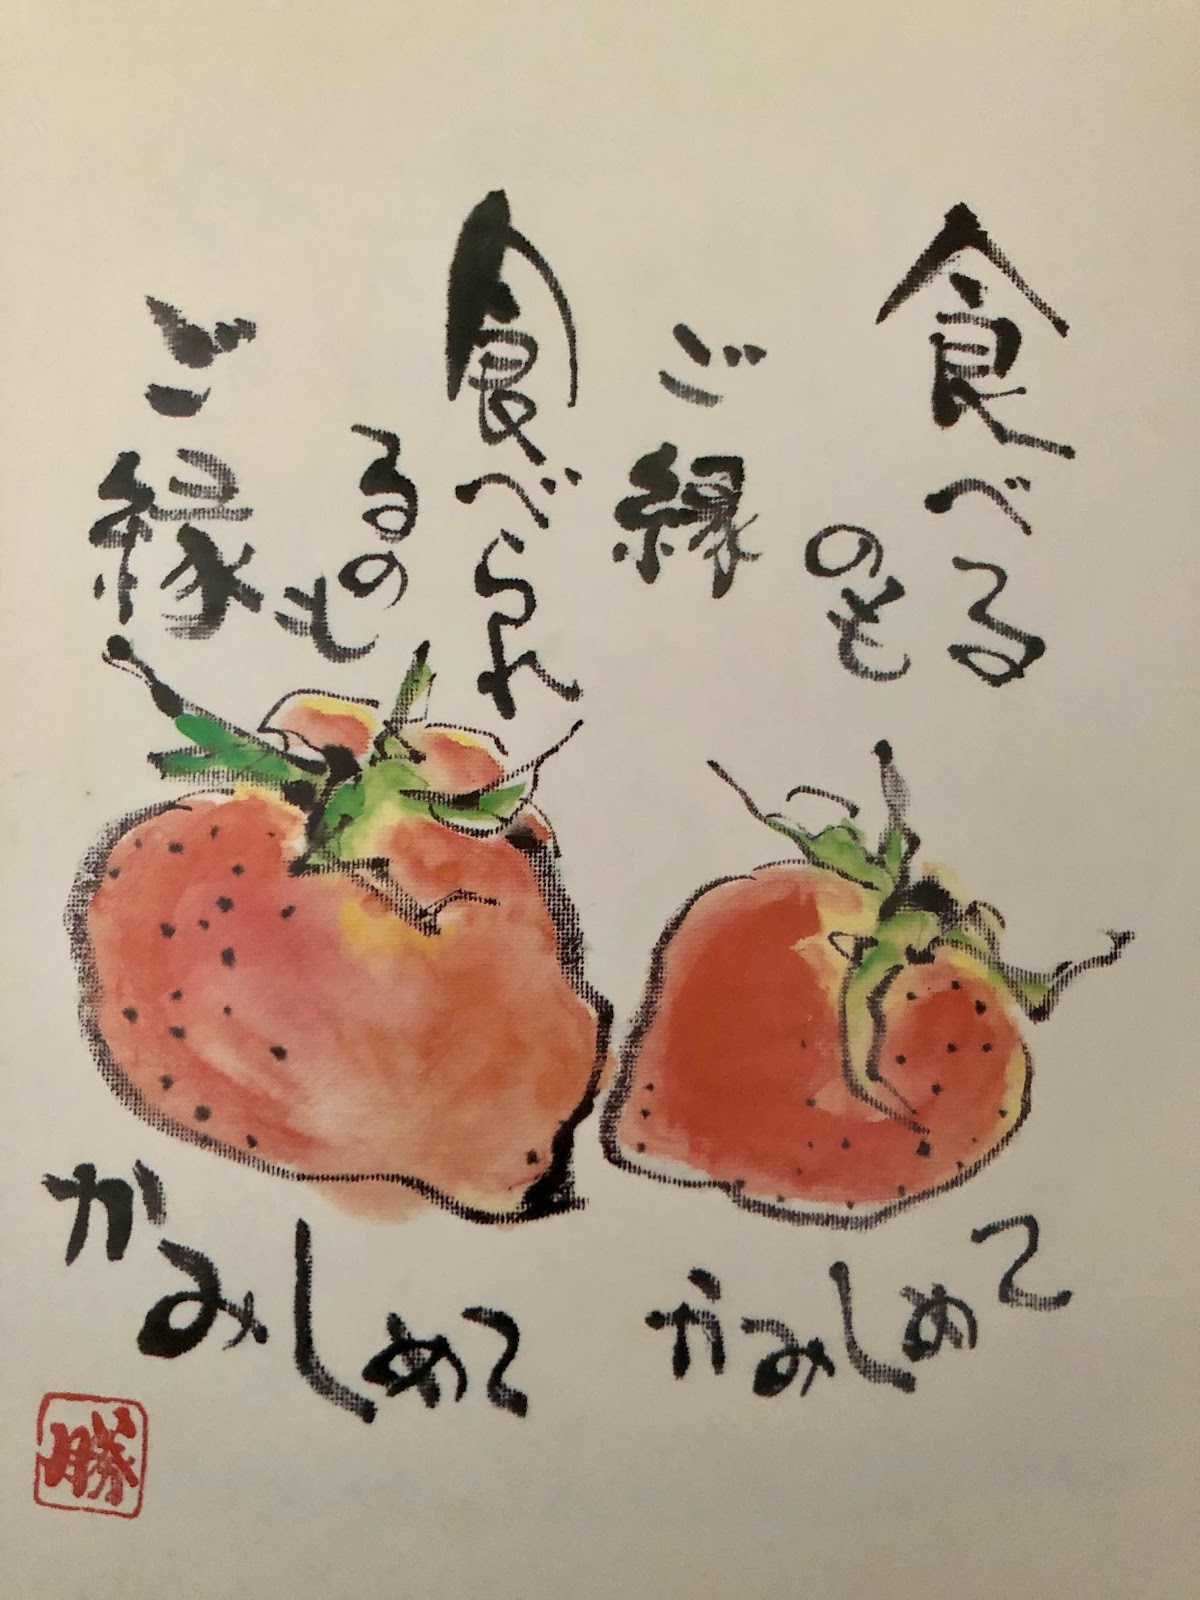 食べる
のも
ご縁
かみしめて
食べられ
るの
も
ご縁
かみしめて
勝